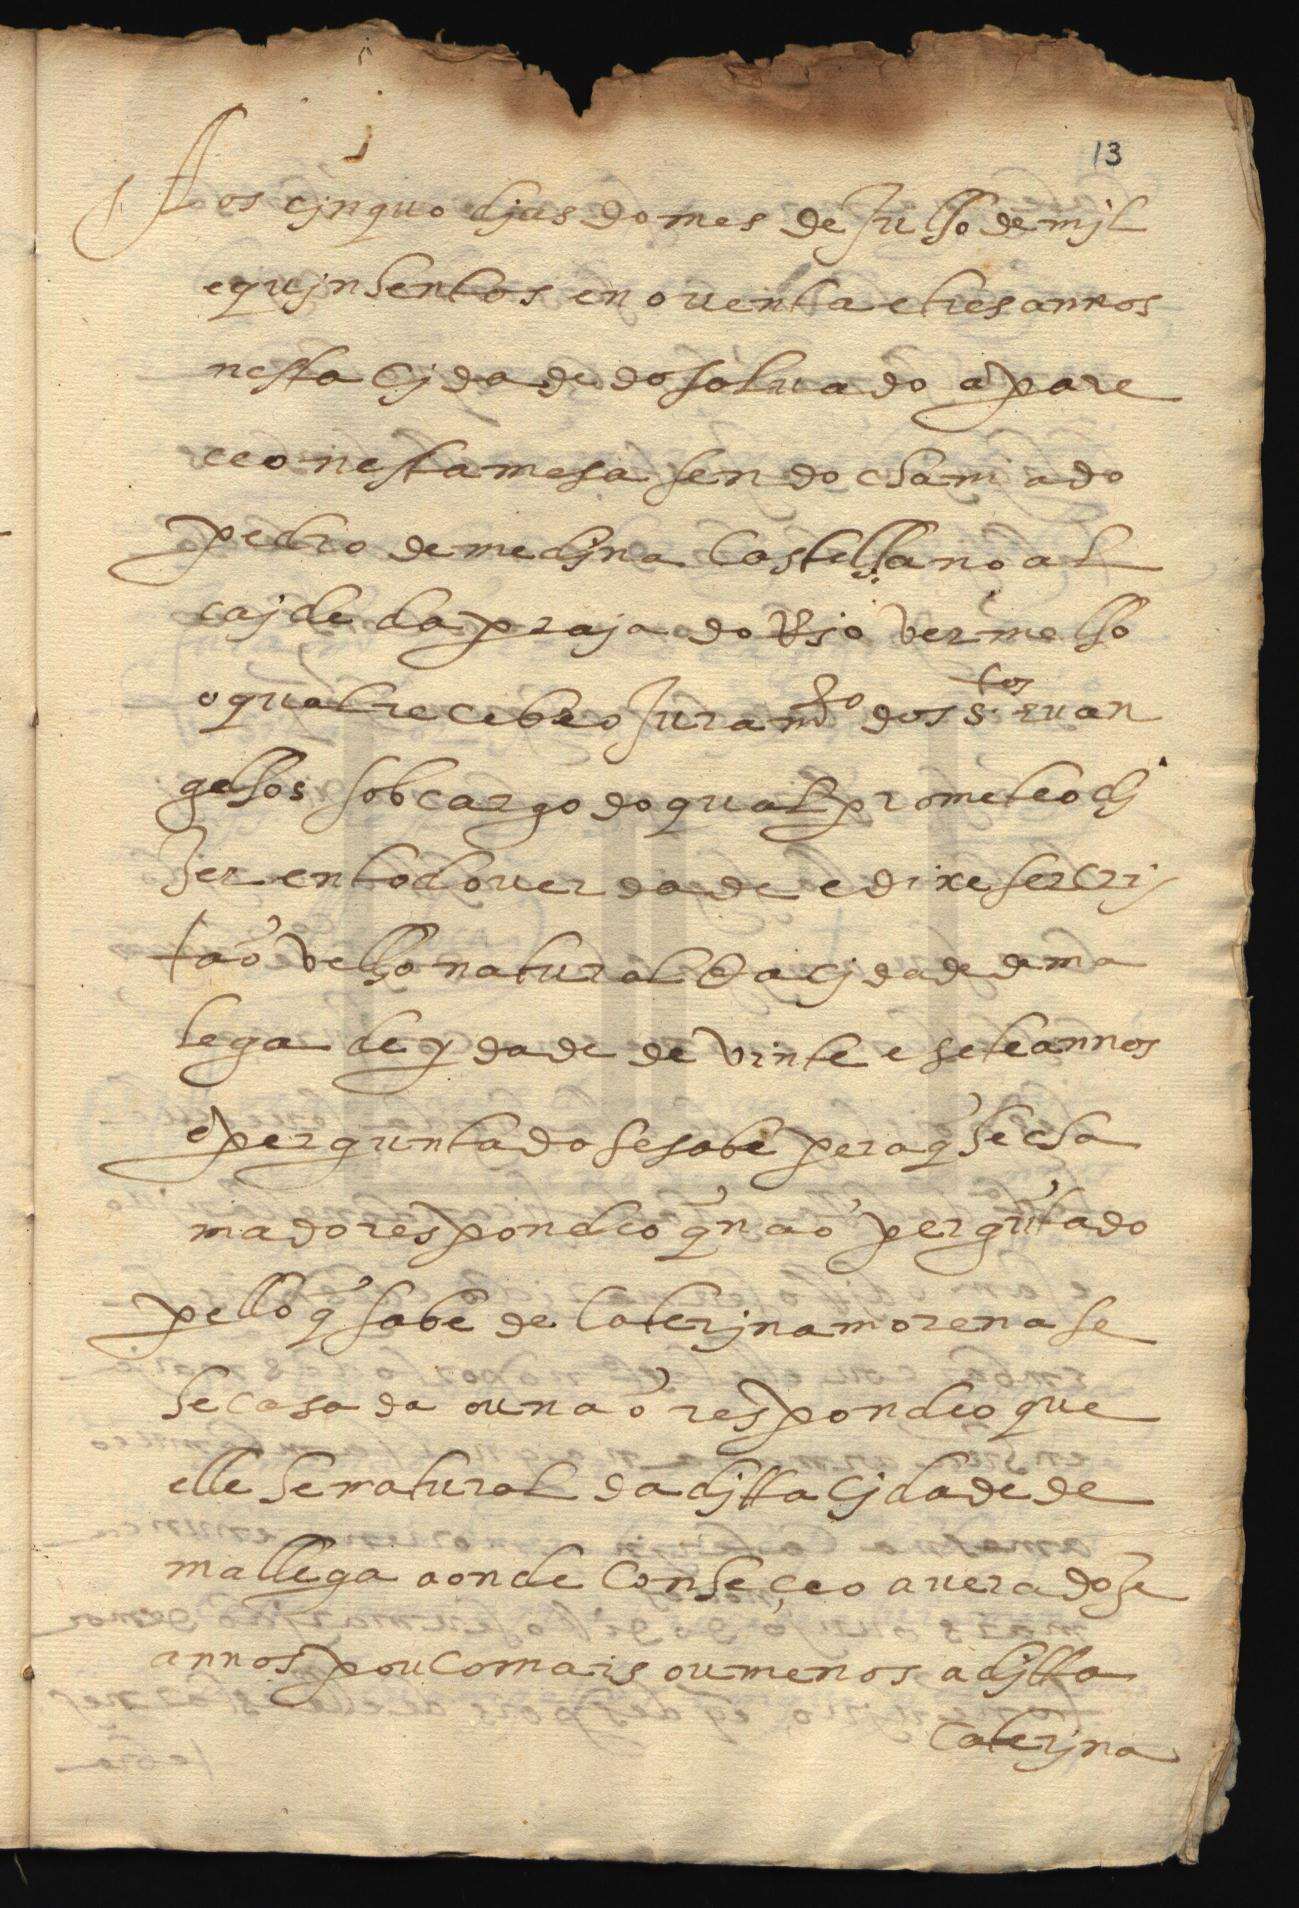 13
Aos cjnquo djas do mes de Julho de mjl
e qujnhentos e noventa e tres annos
nesta cjdade do Salvador apare
ceo nesta mesa sendo chamado
pedro de medjna Castelhano al
cajde da praja do Rjo vermelho
o qual recebeo Juramto dos Stos euan
gelhos sob cargo do qual prometeo dj
zer em todo verdade e dixe ser crj
tão velho natural da cjdade da ma
lega de ydade de vinte e sete annos
e perguntado se sabe pera q̃ he cha
mado respondeo q̃ não pergũtado
pello q̃ sabe de Caterjna morena se
he casada ou não respondeo que
elle he natural da djtta Cjdade de
mallega aonde Conheçeo avera doze
annos pouco mais ou menos a djtta
Caterjna